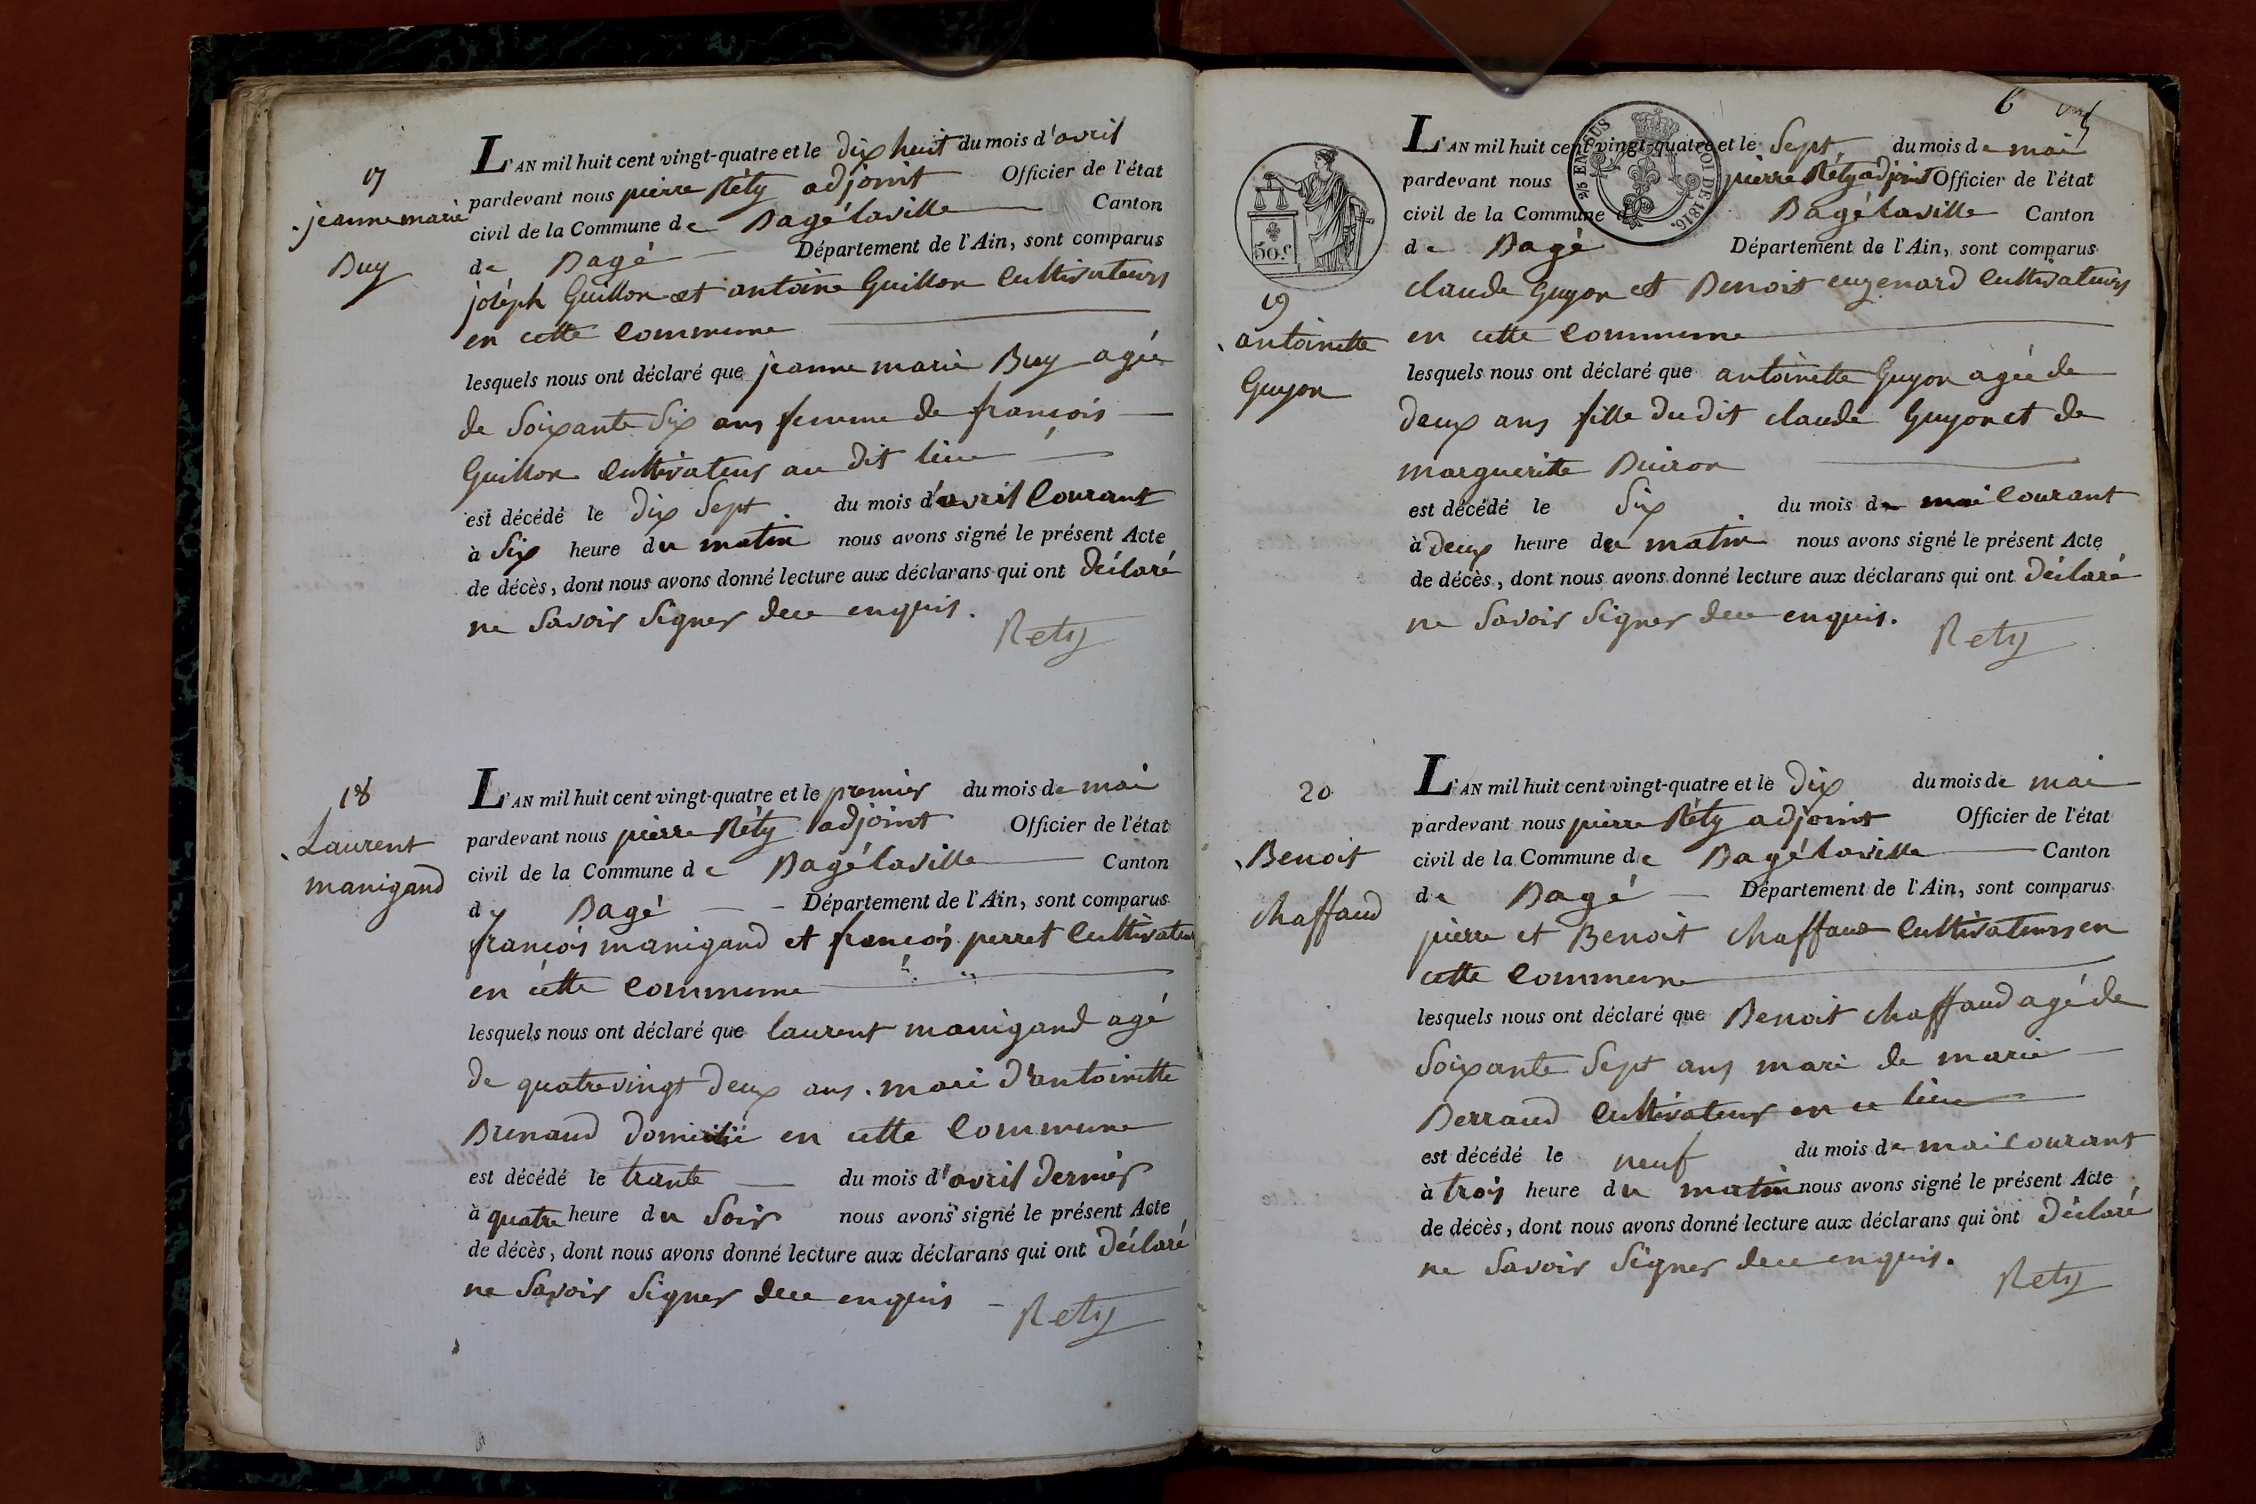 17
jeanne marie
Buy
L'AN mil huit cent vingt-quatre et le dix huit du mois d'avril
pardevant nous pierre Réty adjoint Officier de l'état
civil de la Commune de Bagé laville Canton
de Bagé Département de l'Ain, sont comparus
joseph Guillon et antoine Guillon Cultivateurs
en cette Commune
lesquels nous ont déclaré que jeanne marie Buy agée
de Soixante Six ans femme de françois
Guillon Cultivateur au dit lieu
est décédé le dix Sept du mois d'avril Courant
à Six heure du matin nous avons signé le présent Acte
de décès, dont nous avons donné lecture aux déclarans qui ont déclaré
ne Savoir Signer de ce enquis.
Rety
18
Laurent
manigand
L'AN mil huit cent vingt-quatre et le premier du mois de mai
pardevant nous pierre Réty adjoint Officier de l'état
civil de la Commune de Bagé laville Canton
de Bagé Département de l'Ain, sont comparus
françois manigand et françois perret Cultivateurs
en cette Commune
lesquels nous ont déclaré que laurent manigand agé
de quatre vingt deux ans. mari d'antoinette
Brenaud domicilié en cette Commune
est décédé le trente du mois d'avril dernier
à quatre heure du Soir nous avons signé le présent Acte
de décès, dont nous avons donné lecture aux déclarans qui ont déclaré
ne Savoir Signer de ce enquis
Rety
6
50.c
2/5 EN SUS
LOI DE 1816.
19
antoinette
Guyon
L'AN mil huit cent vingt-quatre et le Sept du mois de mai
pardevant nous pierre Réty adjoint Officier de l'état
civil de la Commune de Bagé laville Canton
de Bagé Département de l'Ain, sont comparus
claude Guyon et Benoit cuzenard Cultivateurs
en cette Commune
lesquels nous ont déclaré que antoinette Guyon agée de
deux ans fille du dit claude Guyon et de
marguerite Buiron
est décédé le Six du mois de mai Courant
à deux heure du matin nous avons signé le présent Acte
de décès, dont nous avons donné lecture aux déclarans qui ont déclaré
ne Savoir Signer de ce enquis.
Rety
20
Benoit
chaffaud
L'AN mil huit cent vingt-quatre et le dix du mois de mai
pardevant nous pierre Réty adjoint Officier de l'état
civil de la Commune de Bagé laville Canton
de Bagé Département de l'Ain, sont comparus
pierre et Benoit chaffaud Cultivateurs en
cette Commune
lesquels nous ont déclaré que Benoit chaffaud agé de
Soixante Sept ans mari de marie
Berraud Cultivateur en ce lieu
est décédé le neuf du mois de mai Courant
à trois heure du matin nous avons signé le présent Acte
de décès, dont nous avons donné lecture aux déclarans qui ont déclaré
ne Savoir Signer de ce enquis.
Rety